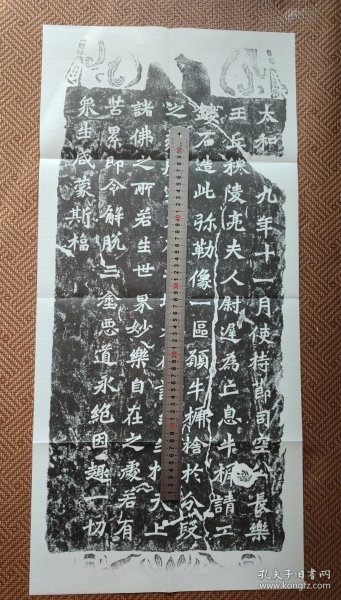 太和九年十一月使持節司空公長樂
王丘穆陵亮夫人尉遲為亡息牛橛請工
鏤石造此弥勒像一區願牛橛捨於分段
之託生天上
諸佛之所若生世界妙樂自在之處若有
苦累即令解脫三塗惡道永絕因趣一切
衆生咸蒙斯福
孔夫子旧书网